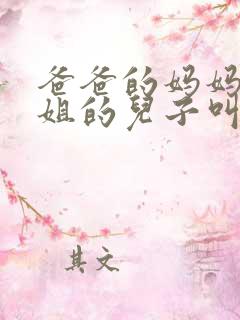 爸爸的妈妈
姐的兒子叫
其文